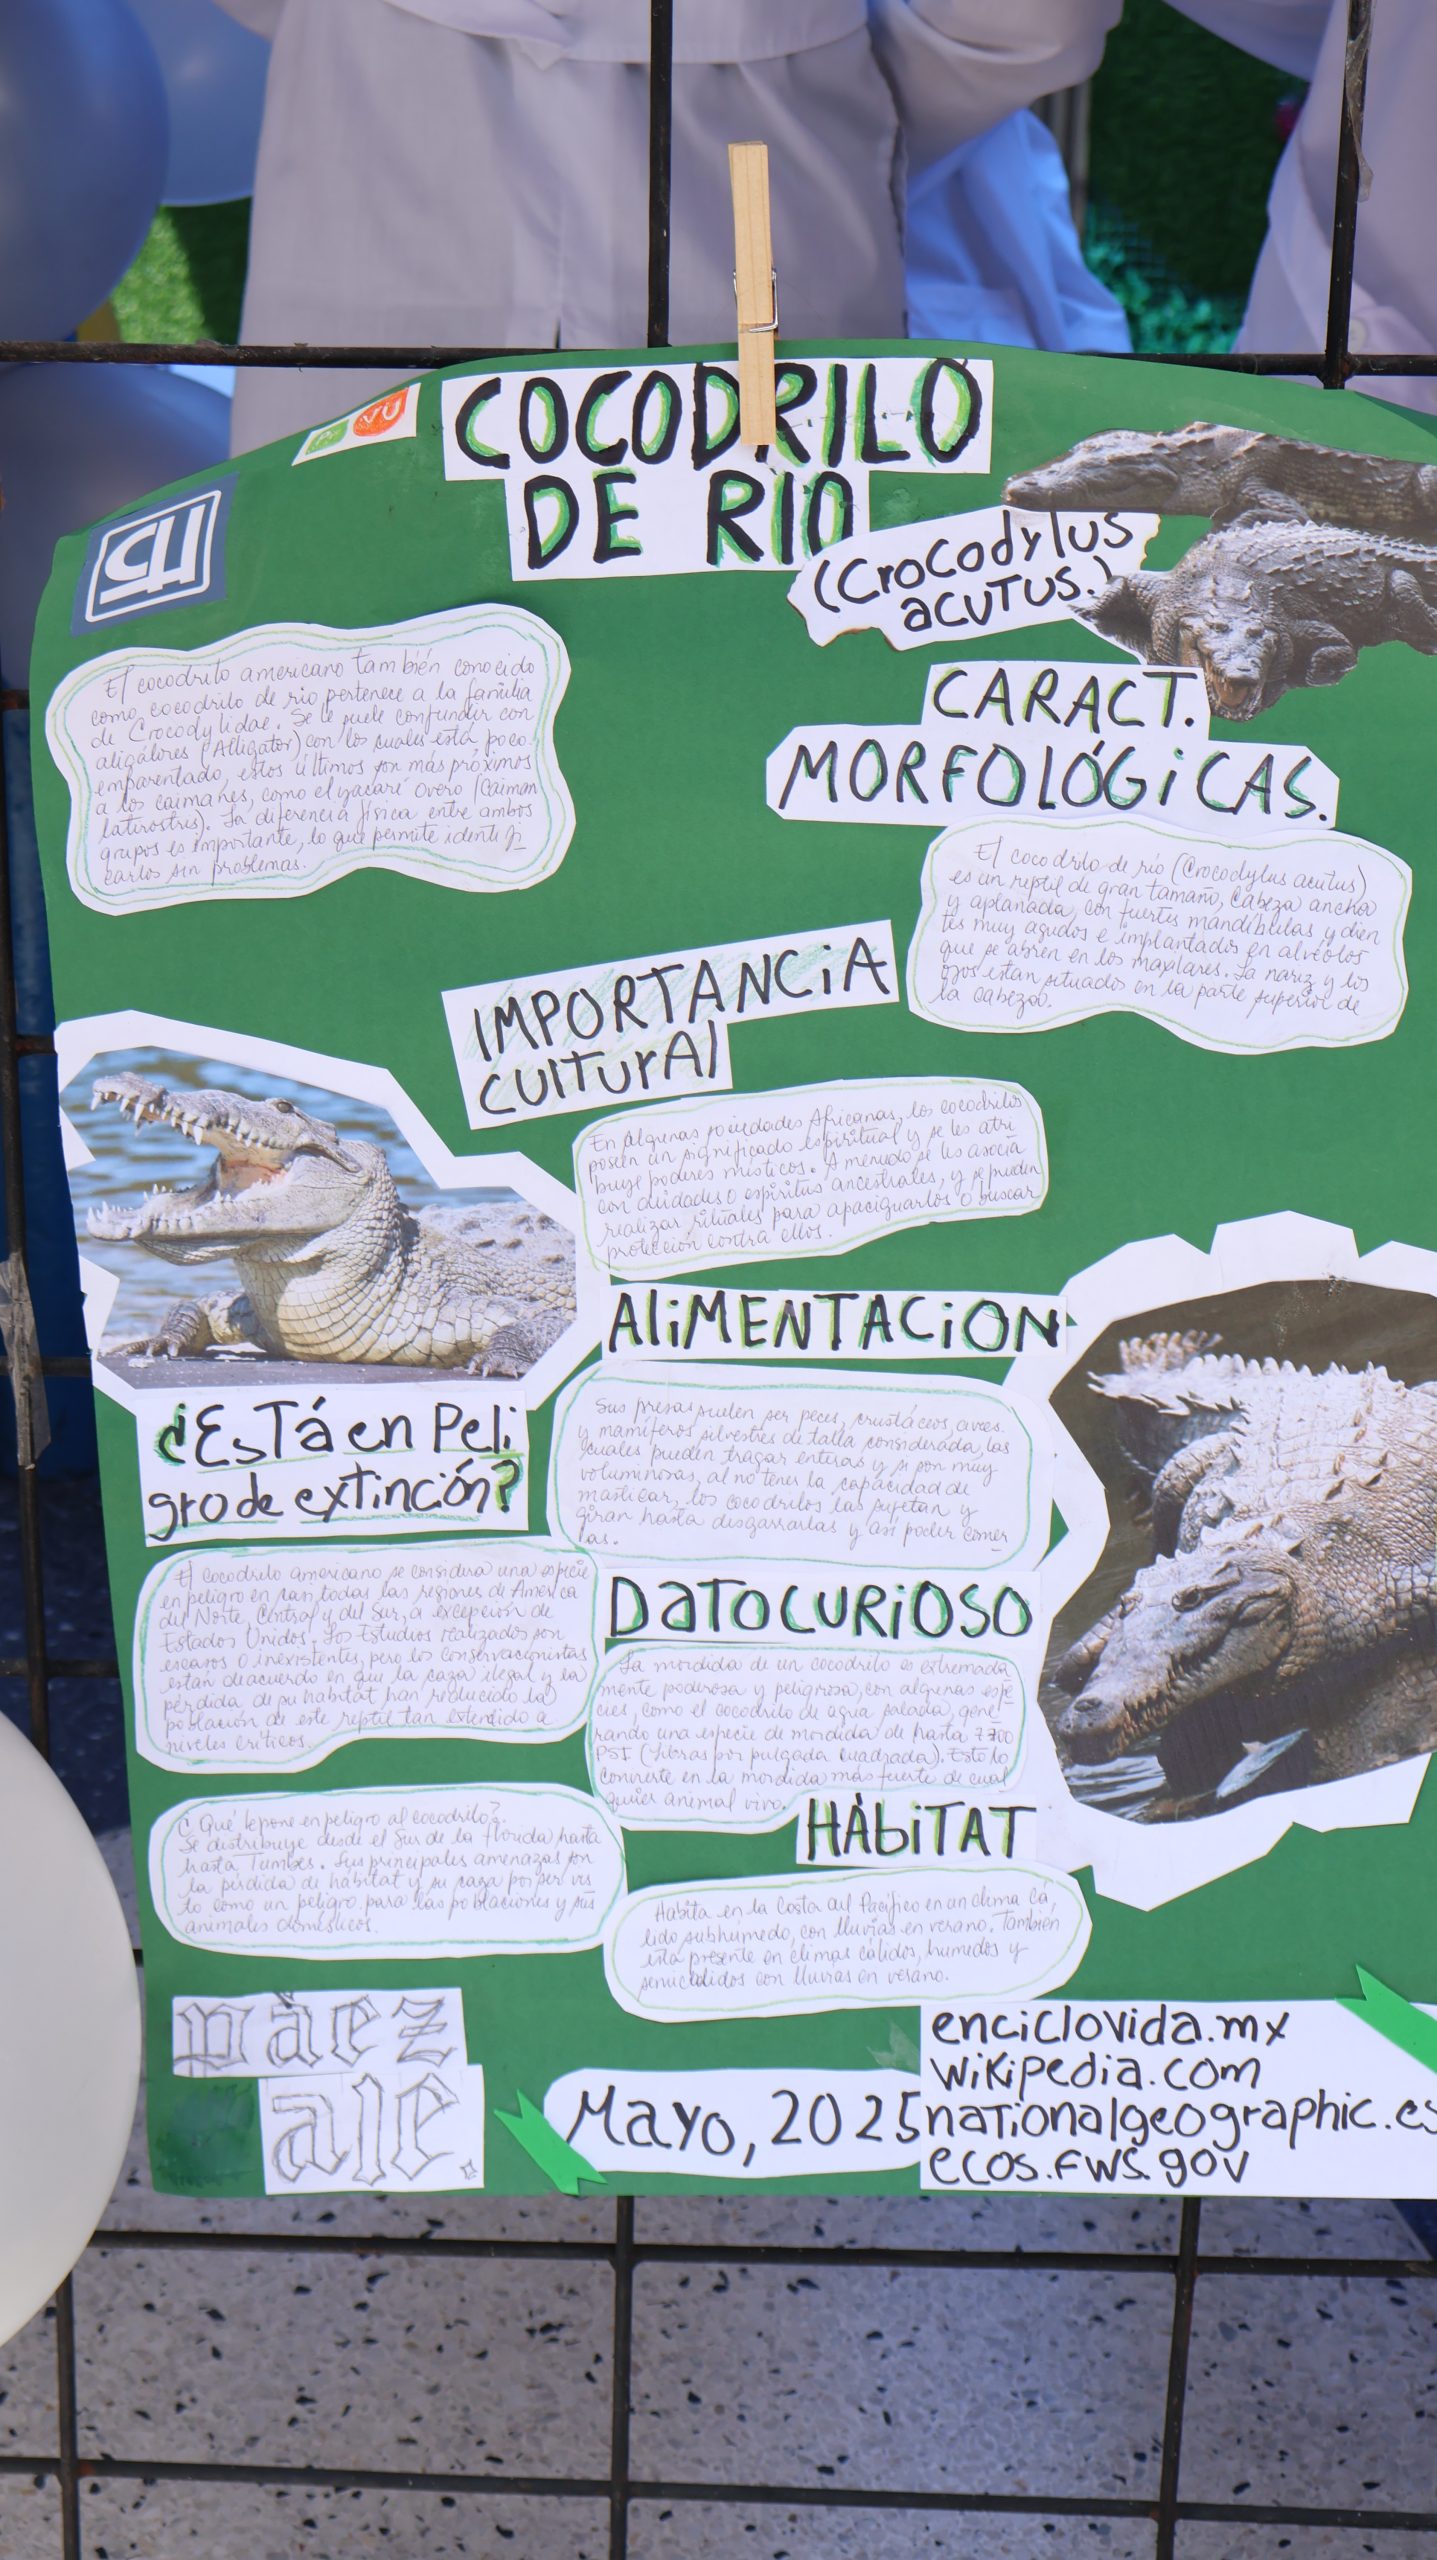 COCODRILO
DE RIO
(Crocodylus
acutus.)
VU
CH
El cocodrilo americano también conocido
como cocodrilo de rio pertenece a la familia
de Crocodylidae. Se le suele confundir con
aligátores (Alligator) con los cuales está poco
emparentado, estos últimos son más próximos
a los caimanes, como el yacaré overo (Caiman
latirostris). La diferencia física entre ambos
grupos es importante, lo que permite identifi
carlos sin problemas.
CARACT.
MORFOLÓGiCAS.
El cocodrilo de río (Crocodylus acutus)
es un reptil de gran tamaño, Cabeza ancha
y aplanada, con fuertes mandíbulas y dien
tes muy agudos e implantados en alvéolos
que se abren en los maxilares. La nariz y los
ojos estan situados en la parte superior de
la cabeza.
IMPORTANCiA
CUlTUrAl
En algunas sociedades Africanas, los cocodrilos
poseen un significado espiritual y se les atri
buye poderes místicos. A menudo se les asocia
con deidades o espíritus ancestrales, y se pueden
realizar rituales para apaciguarlos o buscar
protección contra ellos.
AliMENTACiON
Sus presas suelen ser peces, crustáceos, aves
y mamíferos silvestres de talla considerada, las
cuales pueden tragar enteras y si son muy
voluminosas, al no tener la capacidad de
masticar, los cocodrilos las sujetan y
giran hasta desgarrarlas y así poder comer
las.
¿EsTá en Peli
gro de extinción?
El cocodrilo americano se considera una especie
en peligro en casi todas las regiones de América
del Norte, Central y del Sur, a excepción de
Estados Unidos. Los Estudios realizados son
escasos o inexistentes, pero los conservacionistas
están deacuerdo en que la caza ilegal y la
pérdida de su habitat han reducido la
población de este reptil tan extendido a
niveles críticos.
DaTOCURiOSO
La mordida de un cocodrilo es extremada
mente poderosa y peligrosa, con algunas espe
cies, como el cocodrilo de agua salada, gene
rando una especie de mordida de hasta 7700
PSI (libras por pulgada cuadrada). Esto lo
convierte en la mordida más fuerte de cual
quier animal vivo.
¿Qué lepone en peligro al cocodrilo?
Se distribuye desde el Sur de la florida hasta
hasta Tumbes. Sus principales amenazas son
la pérdida de hábitat y su caza por ser vis
to como un peligro para las poblaciones y sus
animales domésticos.
HÁbiTAT
Habita en la Costa del Pacífico en un clima cá
lido subhúmedo, con lluvias en verano. También
esta presente en climas cálidos, humedos y
semicálidos con lluvias en verano.
pàez
ale.
Mayo, 2025
enciclovida.mx
wikipedia.com
nationalgeographic.es
ecos.fws.gov